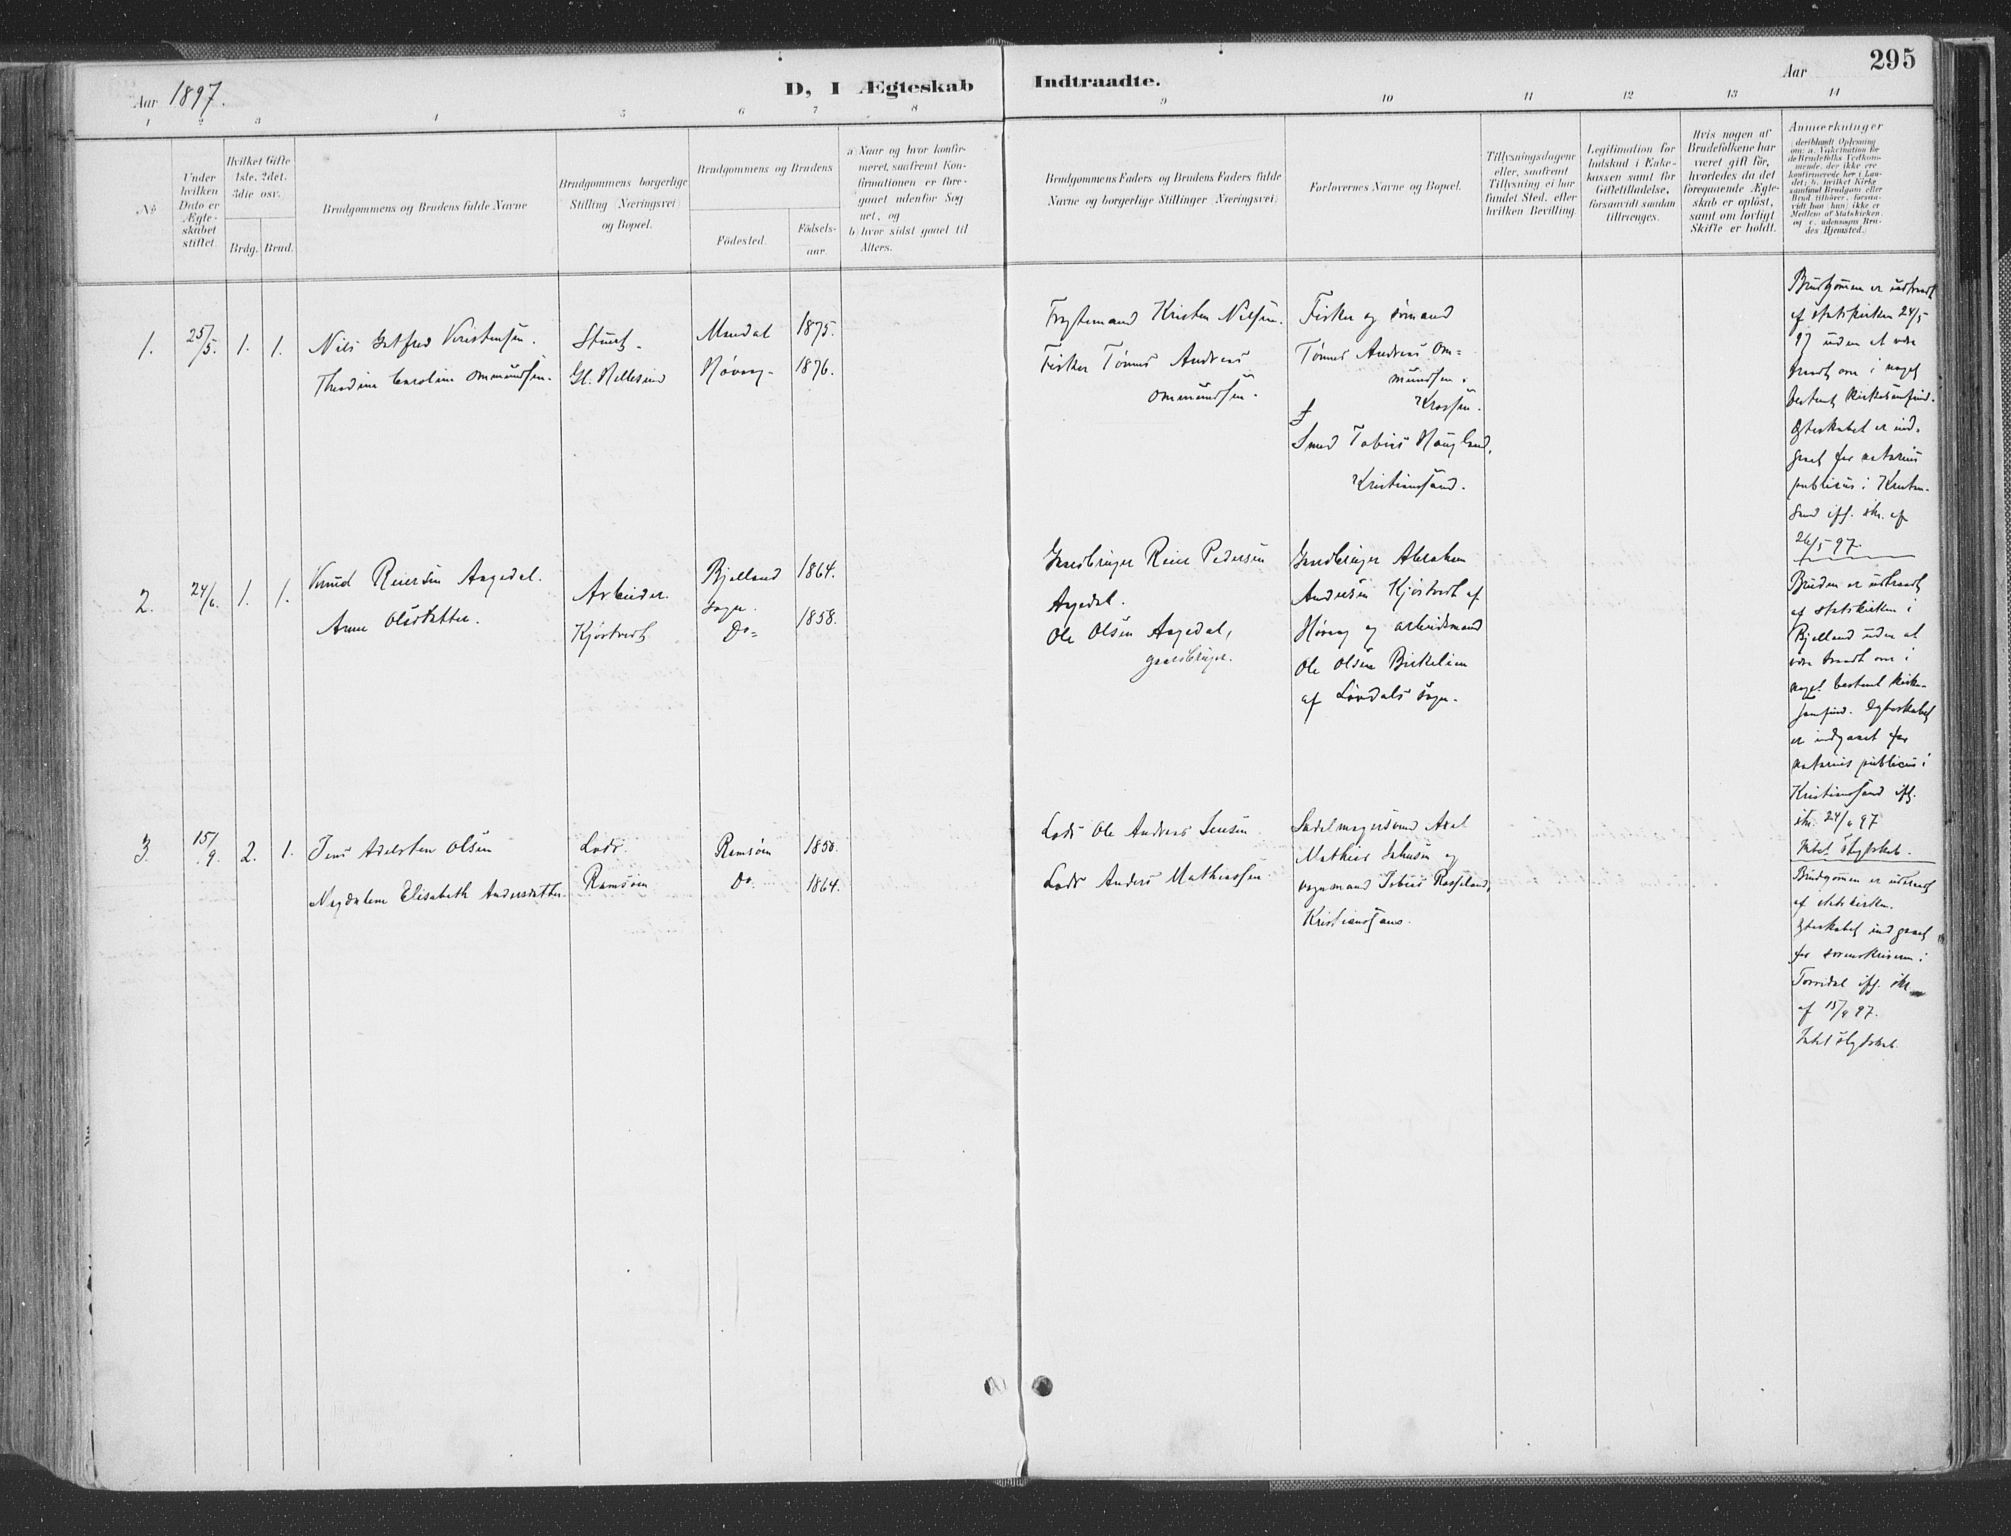 295
Aar 1897.
D, I Ægteskab Indtraadte.
Aar
1 2 3 4 5 6 7 8 9 10 11 12 13 14
No
Under hvilken Dato er Ægteskabet stiftet.
Hvilket Gifte 1ste, 2det, 3die osv.
Brdg. Brud.
Brudgommens og Brudens fulde Navne
Brudgommens borgerlige Stilling (Næringsvei) og Bopæl.
Brudgommens og Brudens
Födested.
Födselsaar.
a) Naar og hvor konfirmeret, saafremt Konfirmationen er foregaaet udenfor Sognet, og
b) hvor sidst gaaet til Alters.
Brudgommens Faders og Brudens Faders fulde Navne og borgerlige Stillinger (Næringsvei)
Forlovernes Navne og Bopæl.
Tillysningsdagene eller, saafremt Tillysning ei har fundet Sted, efter hvilken Bevilling.
Legitimation for Indskud i Enkekassen samt for Giftetilladelse, forsaavidt saadan tiltrænges.
Hvis nogen af Brudefolkene har været gift før, hvorledes da det foregaaende Ægteskab er opløst, samt om lovligt Skifte er holdt.
Anmærkninger
1. 25/5. 1. 1.
Nils Gotfred Kristensen.
Thordine Caroline Ommundsen.
Stuert
Gl. Hellesund
Mandal 1875.
Høvaag 1876.
Kristen Nilsen.
Fisker Tønnes Andreas
Ommundsen.
Fisker og sømand
Tønnes Andreas Om=
mundsen.
Smed Tobias Haugland,
Kristianssand.
Brudgommen er udtraadt
af statskirken 24/5
97 uden at være
traadt over i noget
bestemt kirkesamfund.
Ægteskabet er ind=
gaaet for notarius
publicus i Kristian-
sand ifl. skr. af
26/5 97.
2. 24/6. 1. 1.
Knud Reiersen Aagedal.
Anne Olsdatter.
Arbeider
Kjøstvedt
Bjelland
sogn. 1864.
Do= 1858.
Gaardbruger Reier Pedersen
Aagedal.
Ole Olsen Aagedal,
gaardbruger.
Gaardbruger Abraham
Andersen Kjøstvedt af
Høvaag og arbeidsmand
Ole Olsen Birkelien
af sogn.
Bruden er udtraadt
af statskirken i
Bjelland uden at
være traadt over i
noget bestemt kirke-
samfund. Ægteskabet
er indgaaet for
notarius publicus i
Kristianssand ifl.
skr. 24/6 97
Intet slægtskab.
3. 15/9. 2. 1.
Jens Adelsten Olsen
Magdalene Elisabeth Andersdatter.
Lods.
Ramsøen
Ramsøen 1850.
Do. 1864.
Lods Ole Andreas Jensen
Lods Anders Mathiassen.
Sadelmagersvend Axel
Mathias Johnsen og
vognmand Tobias Rosseland,
Kristianssand.
Brudgommen er udtraadt
af statskirken.
Ægteskabet indgaaet
for sorenskriveren i
Torridal ifl. skr.
af 15/9 97.
Intet slægtskab.